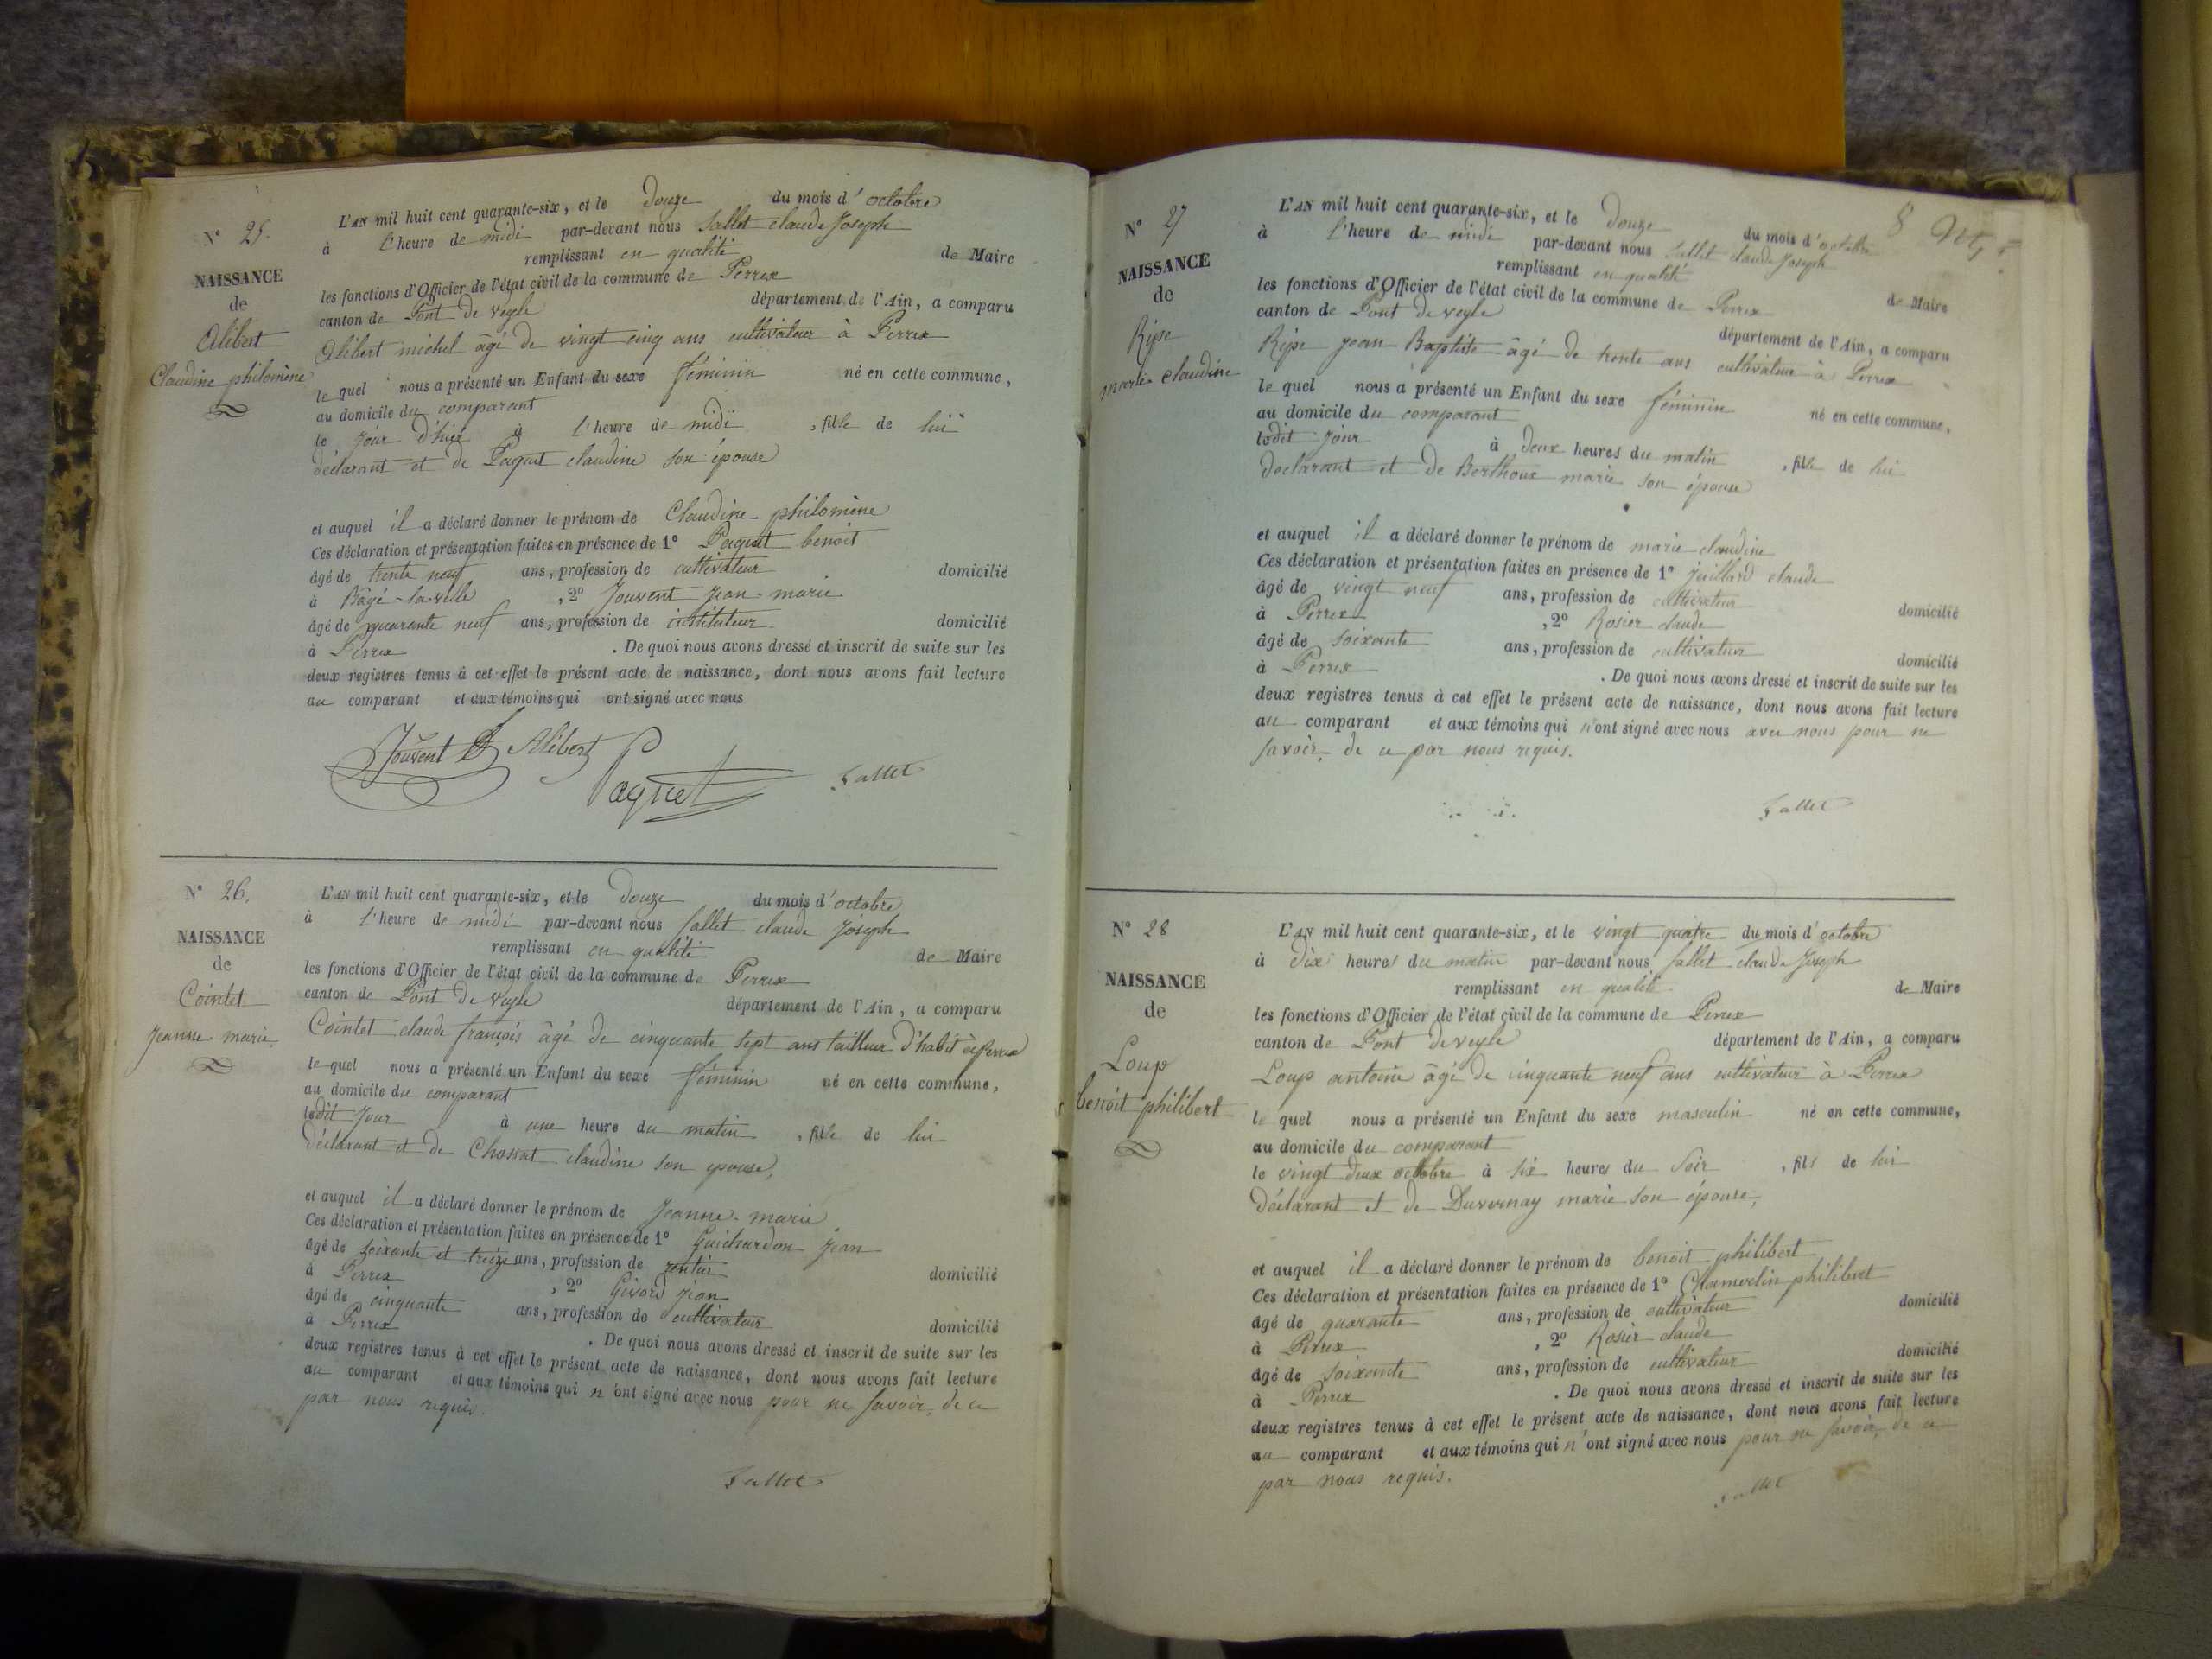 N° 25.
NAISSANCE
de
Alibert
Claudine philomène
L'AN mil huit cent quarante-six, et le Douze du mois d'octobre
à l'heure de midi par-devant nous Sallet claude Joseph
remplissant en qualité de Maire
les fonctions d'Officier de l'état civil de la commune de Perrex
canton de Pont de veyle département de l'Ain, a comparu
Alibert michel âgé de vingt cinq ans cultivateur à Perrex
le quel nous a présenté un Enfant du sexe féminin né en cette commune,
au domicile du comparant
le jour d'hier à l'heure de midi, fille de lui
déclarant et de Paquet claudine son épouse
et auquel il a déclaré donner le prénom de Claudine philomène
Ces déclaration et présentation faites en présence de 1° Paquet benoit
âgé de trente neuf ans, profession de cultivateur domicilié
à Bâgé-la-ville, 2° Jouvent Jean-marie
âgé de quarante neuf ans, profession de instituteur domicilié
à Perrex. De quoi nous avons dressé et inscrit de suite sur les
deux registres tenus à cet effet le présent acte de naissance, dont nous avons fait lecture
au comparant et aux témoins qui ont signé avec nous
Jouvent Alibert
Paquet Sallet
N° 26.
NAISSANCE
de
Cointet
Jeanne marie
L'AN mil huit cent quarante-six, et le Douze du mois d'octobre
à l'heure de midi par-devant nous Sallet claude Joseph
remplissant en qualité de Maire
les fonctions d'Officier de l'état civil de la commune de Perrex
canton de Pont de veyle département de l'Ain, a comparu
Cointet claude françois âgé de cinquante sept ans tailleur d'habit à Perrex
le quel nous a présenté un Enfant du sexe féminin né en cette commune,
au domicile du comparant
ledit jour à une heure du matin, fille de lui
Déclarant et de Chossat claudine son epouse,
et auquel il a déclaré donner le prénom de Jeanne-marie
Ces déclaration et présentation faites en présence de 1° Guichardon Jean
âgé de soixante et treize ans, profession de rentier domicilié
à Perrex, 2° Givord Jean
âgé de cinquante ans, profession de cultivateur domicilié
à Perrex. De quoi nous avons dressé et inscrit de suite sur les
deux registres tenus à cet effet le présent acte de naissance, dont nous avons fait lecture
au comparant et aux témoins qui n'ont signé avec nous pour ne savoir, de ce
par nous requis.
Sallet
8
N° 27
NAISSANCE
de
Ripe
marie claudine
L'AN mil huit cent quarante-six, et le Douze du mois d'octobre
à l'heure de midi par-devant nous Sallet claude Joseph
remplissant en qualité de Maire
les fonctions d'Officier de l'état civil de la commune de Perrex
canton de Pont de veyle département de l'Ain, a comparu
Ripe Jean Baptiste âgé de trente ans cultivateur à Perrex
le quel nous a présenté un Enfant du sexe féminin né en cette commune,
au domicile du comparant
ledit jour à deux heures du matin, fille de lui
déclarant et de Berthoux marie son épouse
et auquel il a déclaré donner le prénom de marie claudine
Ces déclaration et présentation faites en présence de 1° Juillard claude
âgé de vingt neuf ans, profession de cultivateur domicilié
à Perrex, 2° Rosier claude
âgé de soixante ans, profession de cultivateur domicilié
à Perrex. De quoi nous avons dressé et inscrit de suite sur les
deux registres tenus à cet effet le présent acte de naissance, dont nous avons fait lecture
au comparant et aux témoins qui n'ont signé avec nous avec nous pour ne
savoir, de ce par nous requis.
Sallet
N° 28
NAISSANCE
de
Loup
benoit philibert
L'AN mil huit cent quarante-six, et le vingt quatre du mois d'octobre
à dix heures du matin par-devant nous Sallet claude Joseph
remplissant en qualité de Maire
les fonctions d'Officier de l'état civil de la commune de Perrex
canton de Pont de veyle département de l'Ain, a comparu
Loup antoine âgé de cinquante neuf ans cultivateur à Perrex
le quel nous a présenté un Enfant du sexe masculin né en cette commune,
au domicile du comparant
le vingt deux octobre à six heures du soir, fils de lui
Déclarant et de Duvernay marie son épouse,
et auquel il a déclaré donner le prénom de benoit philibert
Ces déclaration et présentation faites en présence de 1° Chamerlin philibert
âgé de quarante ans, profession de cultivateur domicilié
à Perrex, 2° Rosier claude
âgé de soixante ans, profession de cultivateur domicilié
à Perrex. De quoi nous avons dressé et inscrit de suite sur les
deux registres tenus à cet effet le présent acte de naissance, dont nous avons fait lecture
au comparant et aux témoins qui n'ont signé avec nous pour ne savoir, de ce
par nous requis.
Sallet